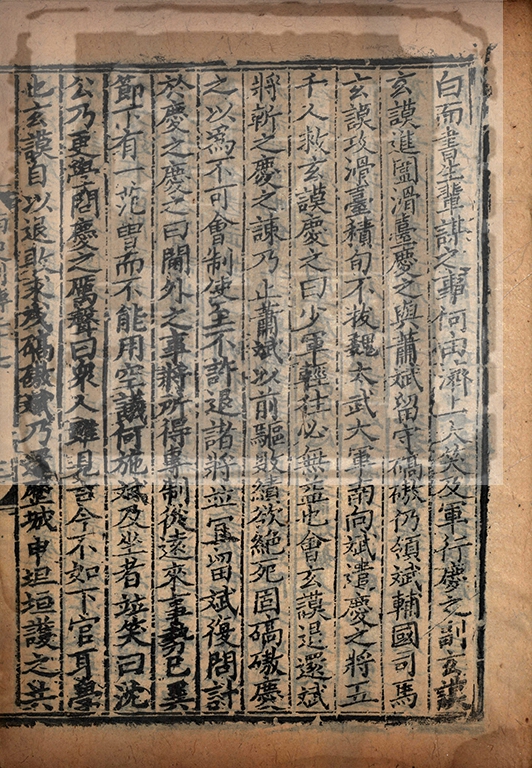 白而書生輩謀之事何由濟上大笑及軍行慶之副玄謨
玄謨進圍滑臺慶之與蕭斌留守碻磝仍領斌輔國司馬
玄謨攻滑臺積旬不拔魏太武大軍南向斌遣慶之將五
千人救玄謨慶之曰少軍輕往必無益也會玄謨退還斌
將斬之慶之諫乃止蕭斌以前驅敗績欲絶死固碻磝慶
之以為不可會制使至不許退諸將並宜留斌復問計
於慶之慶之曰閫外之事將所得專制從遠來事勢已異
節下有一范曾而不能用空議何施斌及坐者並笑曰沈
公乃更學問慶之厲聲曰衆人雖見古今不如下官耳學
也玄謨自以退敗求戍碻磝斌乃還歷城申坦垣護之共